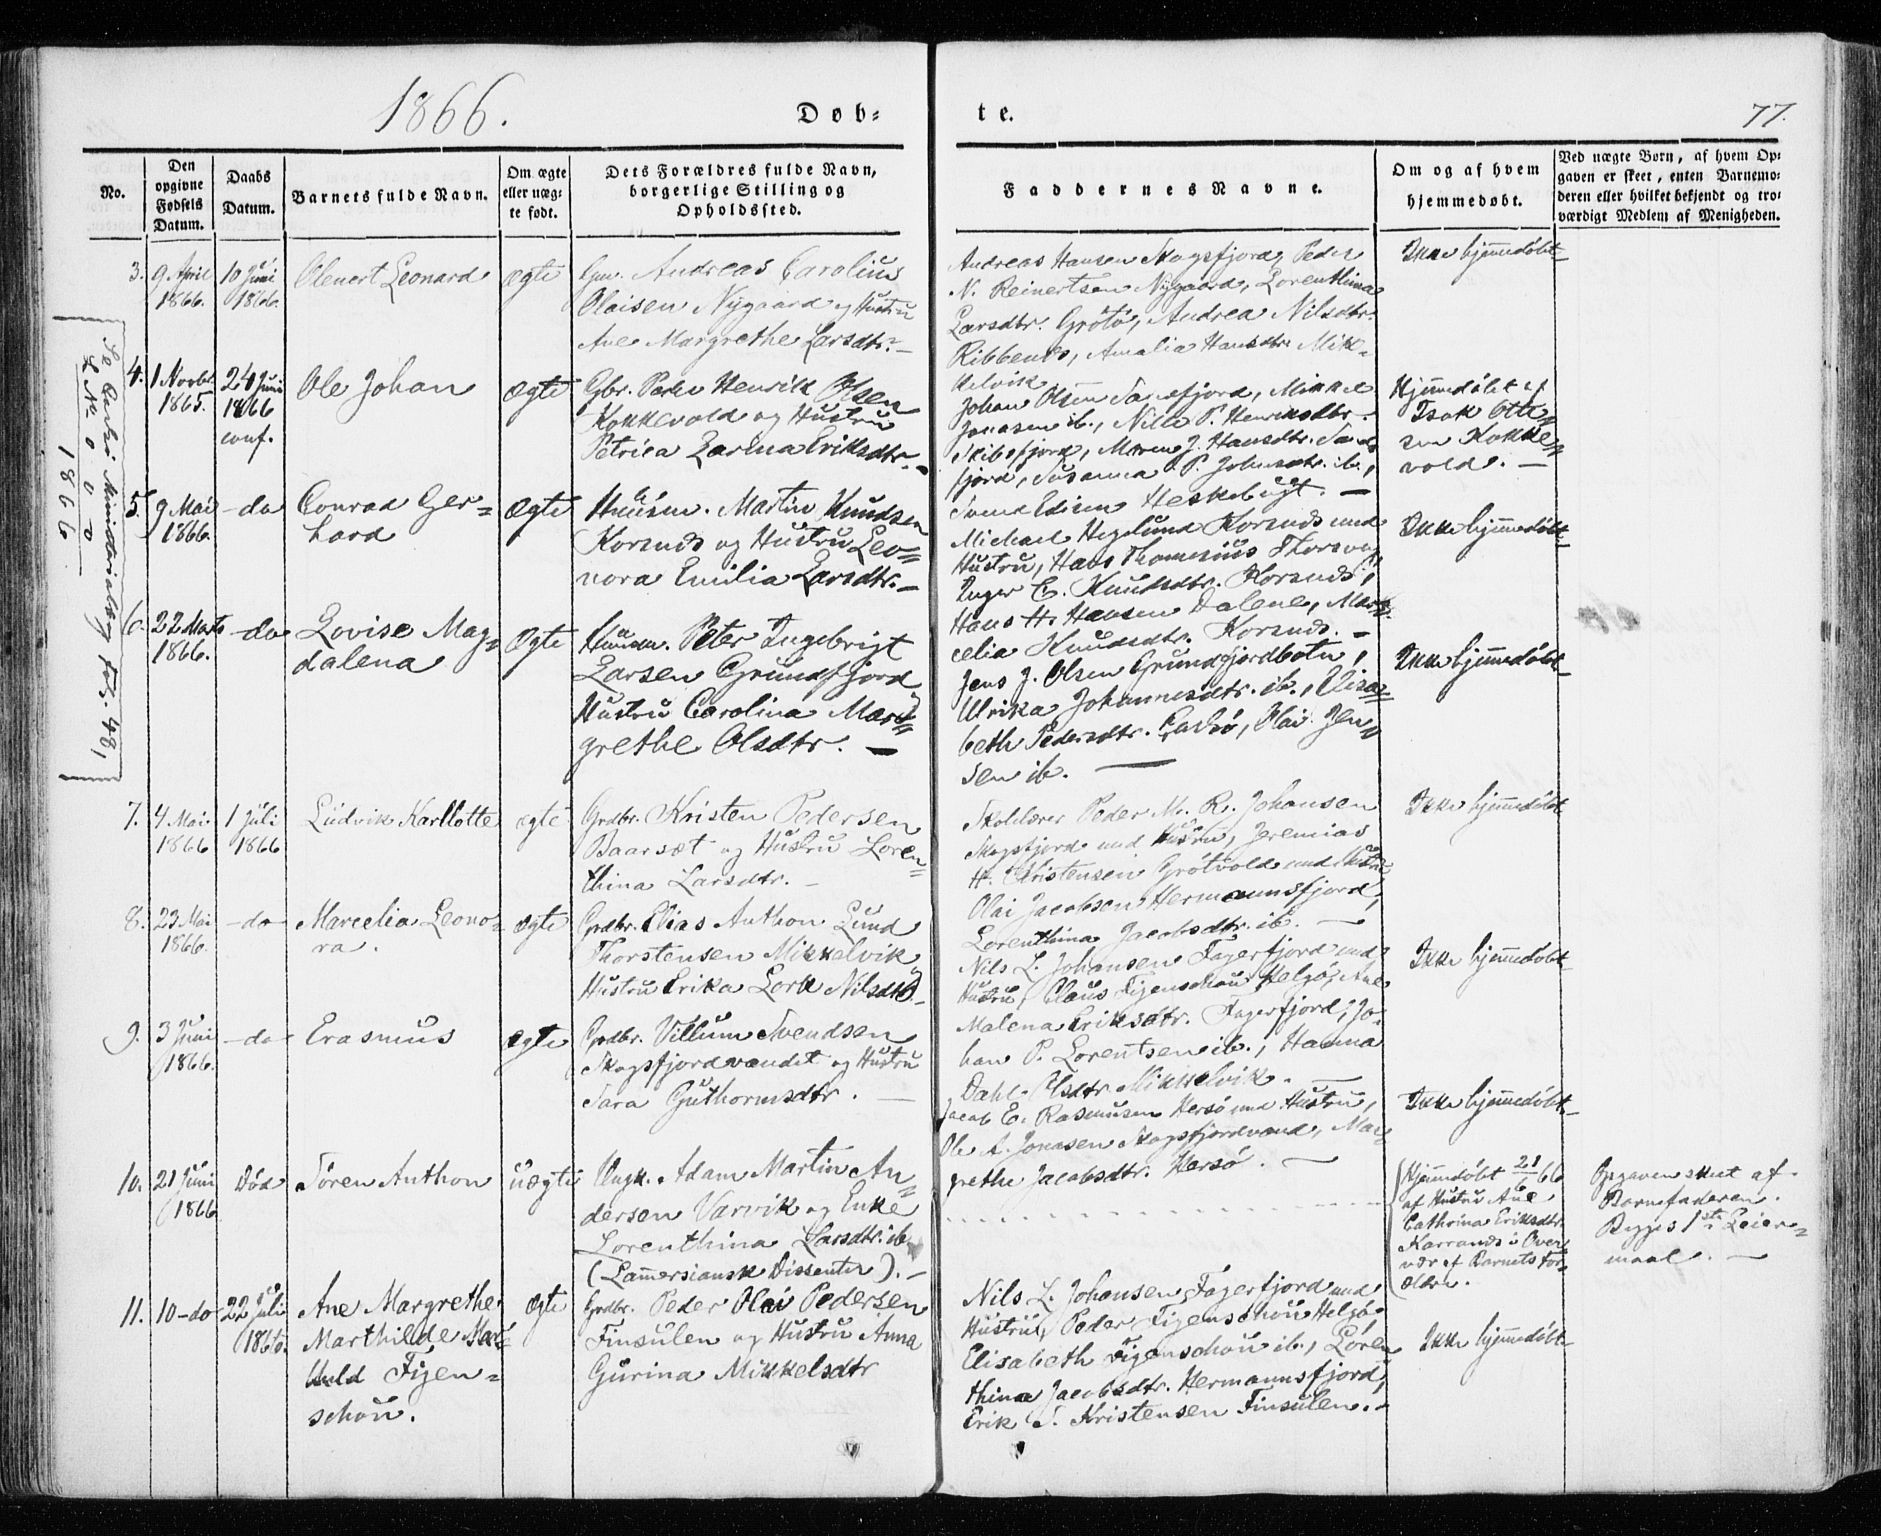 1866.
Døb-
te.
77.
No.
Den
opgivne
Fødsels
Datum.
Daabs
Datum.
Barnets fulde Navn.
Om ægte
eller uæg-
te født.
Dets Forældres fulde Navn,
borgerlige Stilling og
Opholdssted.
Faddernes Navne.
Om og af hvem
hjemmedøbt.
Ved uægte Børn, af hvem Op-
gaven er skeet, enten Barnemo-
deren eller hvilket bekjendt og tro-
værdigt Medlem af Menigheden.
3.
9 April
1866.
10 Juni
1866.
Olenert Leonard
ægte
Gm. Andreas Carolius
Olaisen Nygaard og Hustru
Ane Margrethe Larsdtr. —
Andreas Hansen Skogsfjord, Peder
N. Reinertsen Nygaard, Lorenthina
Larsdtr. Grøtø, Andrea Nilsdtr.
Ribbenes, Amalia Hansdtr. Mik-
kelvik
Ikke hjemmedøbt
4.
1 Novbr.
1865.
24 Juni
1866
conf.
Ole Johan
ægte
Gbr. Peder Henrik Olsen
Kokkevold og Hustru
Petrica Larina Eriksdtr. —
Johan Olsen
Jonasen ib., Nille P. Henriksdtr.
Skibsfjord, Maren J. Hansdtr. Sand-
fjord, Susanna P. Johnsdtr. ib.,
Svend Edisen Heskebugt. —
Hjemmedøbt af
Isak Otte-
sen Kokke-
vold. —
5.
9 Mai
1866.
— do
Conrad Ger-
hard
ægte
Huusm. Martin Knudsen
Korsnes og Hustru Leo-
nora Emilia Larsdtr. —
Michael Hegelund Korsnes med
Hustru, Hans Thomesius Thorsvog,
Inger C. Knudsdtr. Korsnes,
Hans H. Hansen Dalene, Mar-
celia Knudsdtr. Korsnes. —
Ikke hjemmedøbt
6.
22 Marts
1866.
— do
Lovise Mag-
dalena
Ægte
Huusm. Peter Ingebrigt
Larsen Grundfjord
Hustru Carolina Mar-
grethe Olsdtr. —
Jens J. Olsen Grundfjordbotn,
Ulrika Johannesdtr. ib., Elisa-
beth Pedersdtr. Carlsø, Olai Jen-
sen ib. —
Ikke hjemmedøbt
Se Carlsø Ministerialbog fol. 48,
L No
1866
7.
4 Mai
1866
1 Juli
1866
Ludvik Karllotte
ægte
Grdbr. Kristen Pedersen
Baarsæt og Hustru Loren-
thina Larsdtr. —
Skolelærer Peder M. R. Johansen
Skogsfjord med Hustru, Jeremias
H. Christensen Grøtvold med Hustru
Olai Jacobsen Hermannsfjord,
Lorenthina Jacobsdtr. ib. —
Ikke hjemmedøbt
8.
23 Mai
1866.
— do —
Marcelia Leono-
ra.
ægte
Grdbr. Elias Anthon Lund
Thorstensen Mikkelvik
Hustru Erika Lork Nilsdtr.
Nils L. Johansen Fagerfjord med
Hustru, Claus Figenschou Helgø, Ane
Malena Eriksdtr. Fagerfjord, Jo-
han P. Lorentsen ib., Hanna
Dahl Olsdtr Mikkelvik. —
Ikke hjemmedøbt
9.
3 Juni
1866.
— do —
Erasmus
ægte
Grdbr. Villum Svendsen
Skogsfjordvandet og Hustru
Sara Guthormsdtr. —
Jacob E. Rasmusen Hersø med Hustru,
Ole A. Jonasen Skogsfjordvand, Mar-
grethe Jacobsdtr. Hersø. —
Ikke hjemmedøbt
10.
21 Juni
1866
Død
Søren Anthon
uægte
Ungk. Adam Martin An-
dersen Varvik og Enke
Lorenthina Larsdtr. ib
(Lammersiansk Dissenter). —
Hjemmedøbt 21/6 66
af Hustru Ane
Cathrina Eriksdtr.
Karrands i Over-
vær af Barnets For-
ældre.
Opgaven skeet af
Barnefaderen.
Begges 1ste Leier-
maal. —
11.
10 — do
22 Juli
1866.
Ane Margrethe
Marthilde
Figen-
schou.
Ægte
Grdbr. Peder Olai Pedersen
Finsulen og Hustru Anna
Gurina Mikkelsdtr
Nils L. Johansen Fagerfjord med
Hustru, Peder Figenschou Helgø,
Elisabeth Figenschou ib., Loren-
thina Jacobsdtr. Hermannsfjord,
Erik J. Kristensen Finsulen. —
Ikke hjemmedøbt